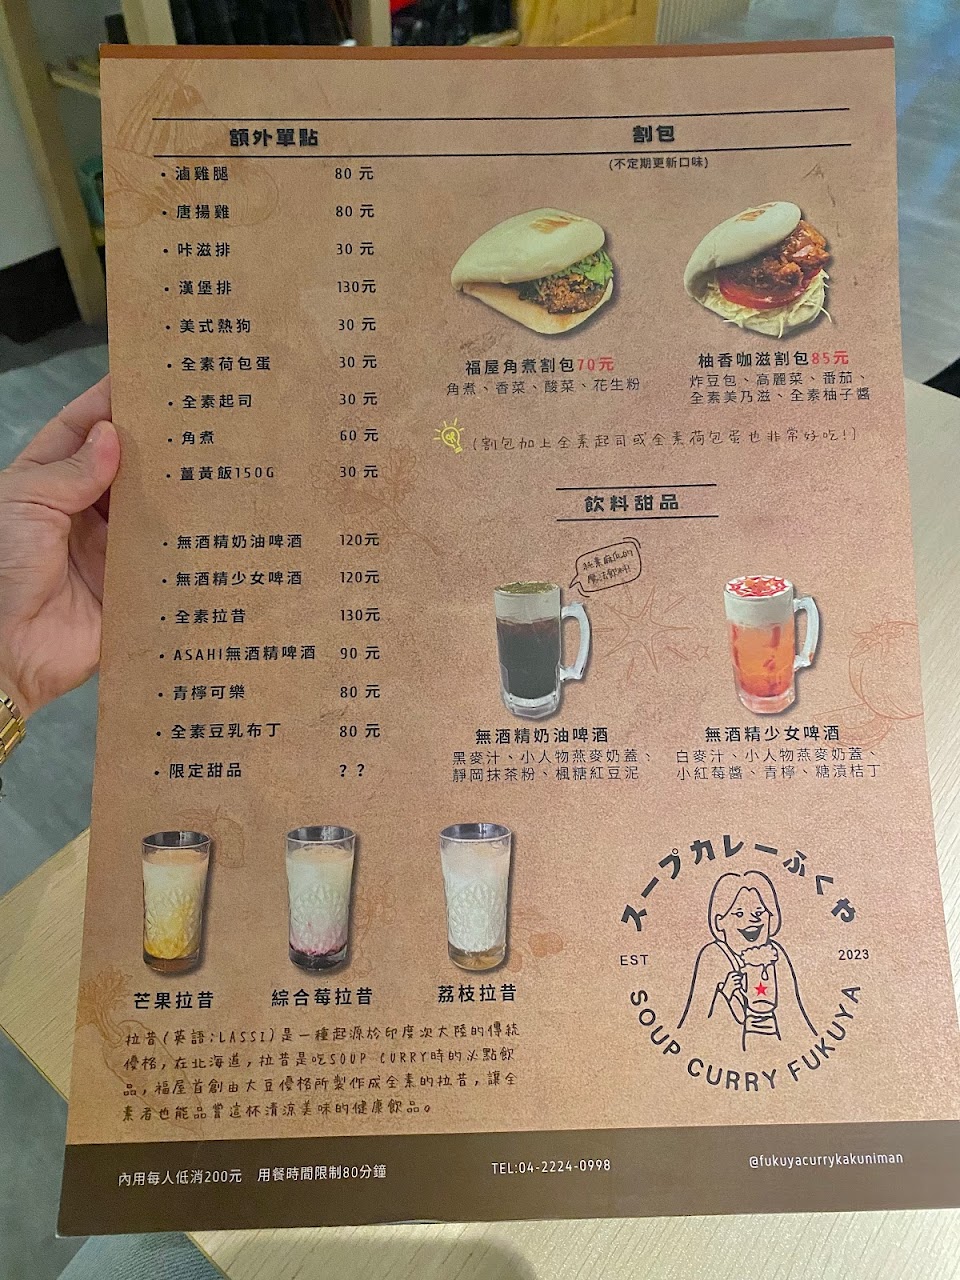 額外單點
滷雞腿 80 元
唐揚雞 80 元
咔滋排 30 元
漢堡排 130元
美式熱狗 30 元
全素荷包蛋 30 元
全素起司 30 元
角煮 60 元
薑黃飯150G 30 元
無酒精奶油啤酒 120元
無酒精少女啤酒 120元
全素拉昔 130元
ASAHI無酒精啤酒 90 元
青檸可樂 80 元
全素豆乳布丁 80 元
限定甜品 ? ?
割包
(不定期更新口味)
福屋角煮割包70元
角煮、香菜、酸菜、花生粉
柚香咖滋割包85元
炸豆包、高麗菜、番茄、
全素美乃滋、全素柚子醬
(割包加上全素起司或全素荷包蛋也非常好吃!)
飲料甜品
魔法飲料!
無酒精奶油啤酒
黑麥汁、小人物燕麥奶蓋、
靜岡抹茶粉、楓糖紅豆泥
無酒精少女啤酒
白麥汁、小人物燕麥奶蓋、
小紅莓醬、青檸、糖漬桔丁
芒果拉昔
綜合莓拉昔
荔枝拉昔
拉昔(英語:LASSI)是一種起源於印度次大陸的傳統
優格,在北海道,拉昔是吃SOUP CURRY時的必點飲
品,福屋首創由大豆優格所製作成全素的拉昔,讓全
素者也能品嘗這杯清涼美味的健康飲品。
スープカレーふくや
EST 2023
SOUP CURRY FUKUYA
內用每人低消200元 用餐時間限制80分鐘
TEL:04-2224-0998
@fukuyacurrykakuniman